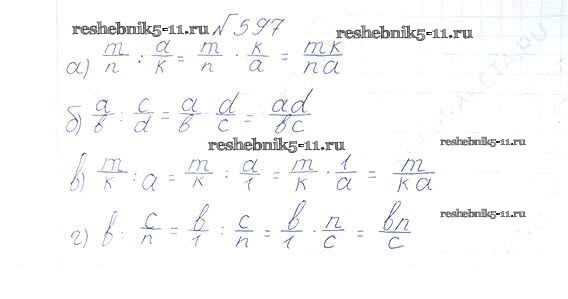 reshebnik5-11.ru №597 reshebnik5-11.ru
а) m/n : a/k = m/n · k/a = mk/na
б) a/в : c/d = a/в d/c = ad/вc
reshebnik5-11.ru reshebnik5-11.ru
в) m/k : a = m/k : a/1 = m/k · 1/a = m/ka
reshebnik5-11.ru
г) в : c/n = в/1 : c/n = в/1 · n/c = вn/c